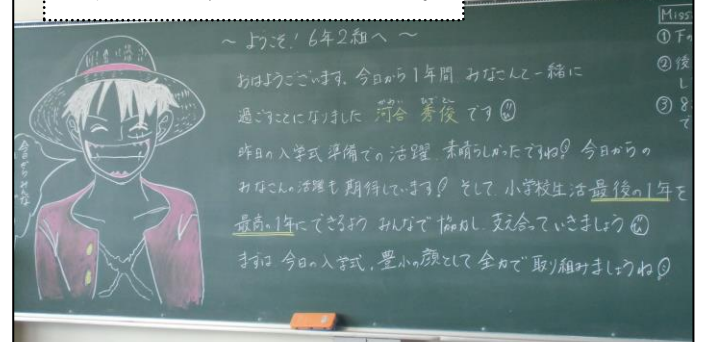 ～ ようこそ！ 6年2組へ ～
おはようございます。今日から1年間 みなさんと一緒に
過ごすことになりました 河合 秀俊 です
昨日の入学式準備での活躍 素晴らしかったですね！ 今日からの
みなさんの活躍も期待しています！ そして 小学校生活最後の1年を
最高の1年にできるよう みんなで協力し 支え合っていきましょう
まずは 今日の入学式、豊小の顔として 全力で取り組みましょうね
今日からみんな
Miss
① 下の
② 後
し
③ 8
で